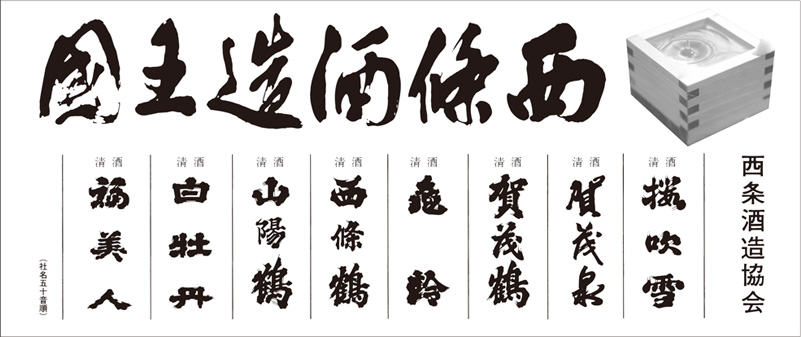 西條酒造王國
西条酒造協会
清酒
桜吹雪
清酒
賀茂泉
清酒
賀茂鶴
清酒
亀齢
清酒
西條鶴
清酒
山陽鶴
清酒
白牡丹
清酒
福美人
(社名五十音順)